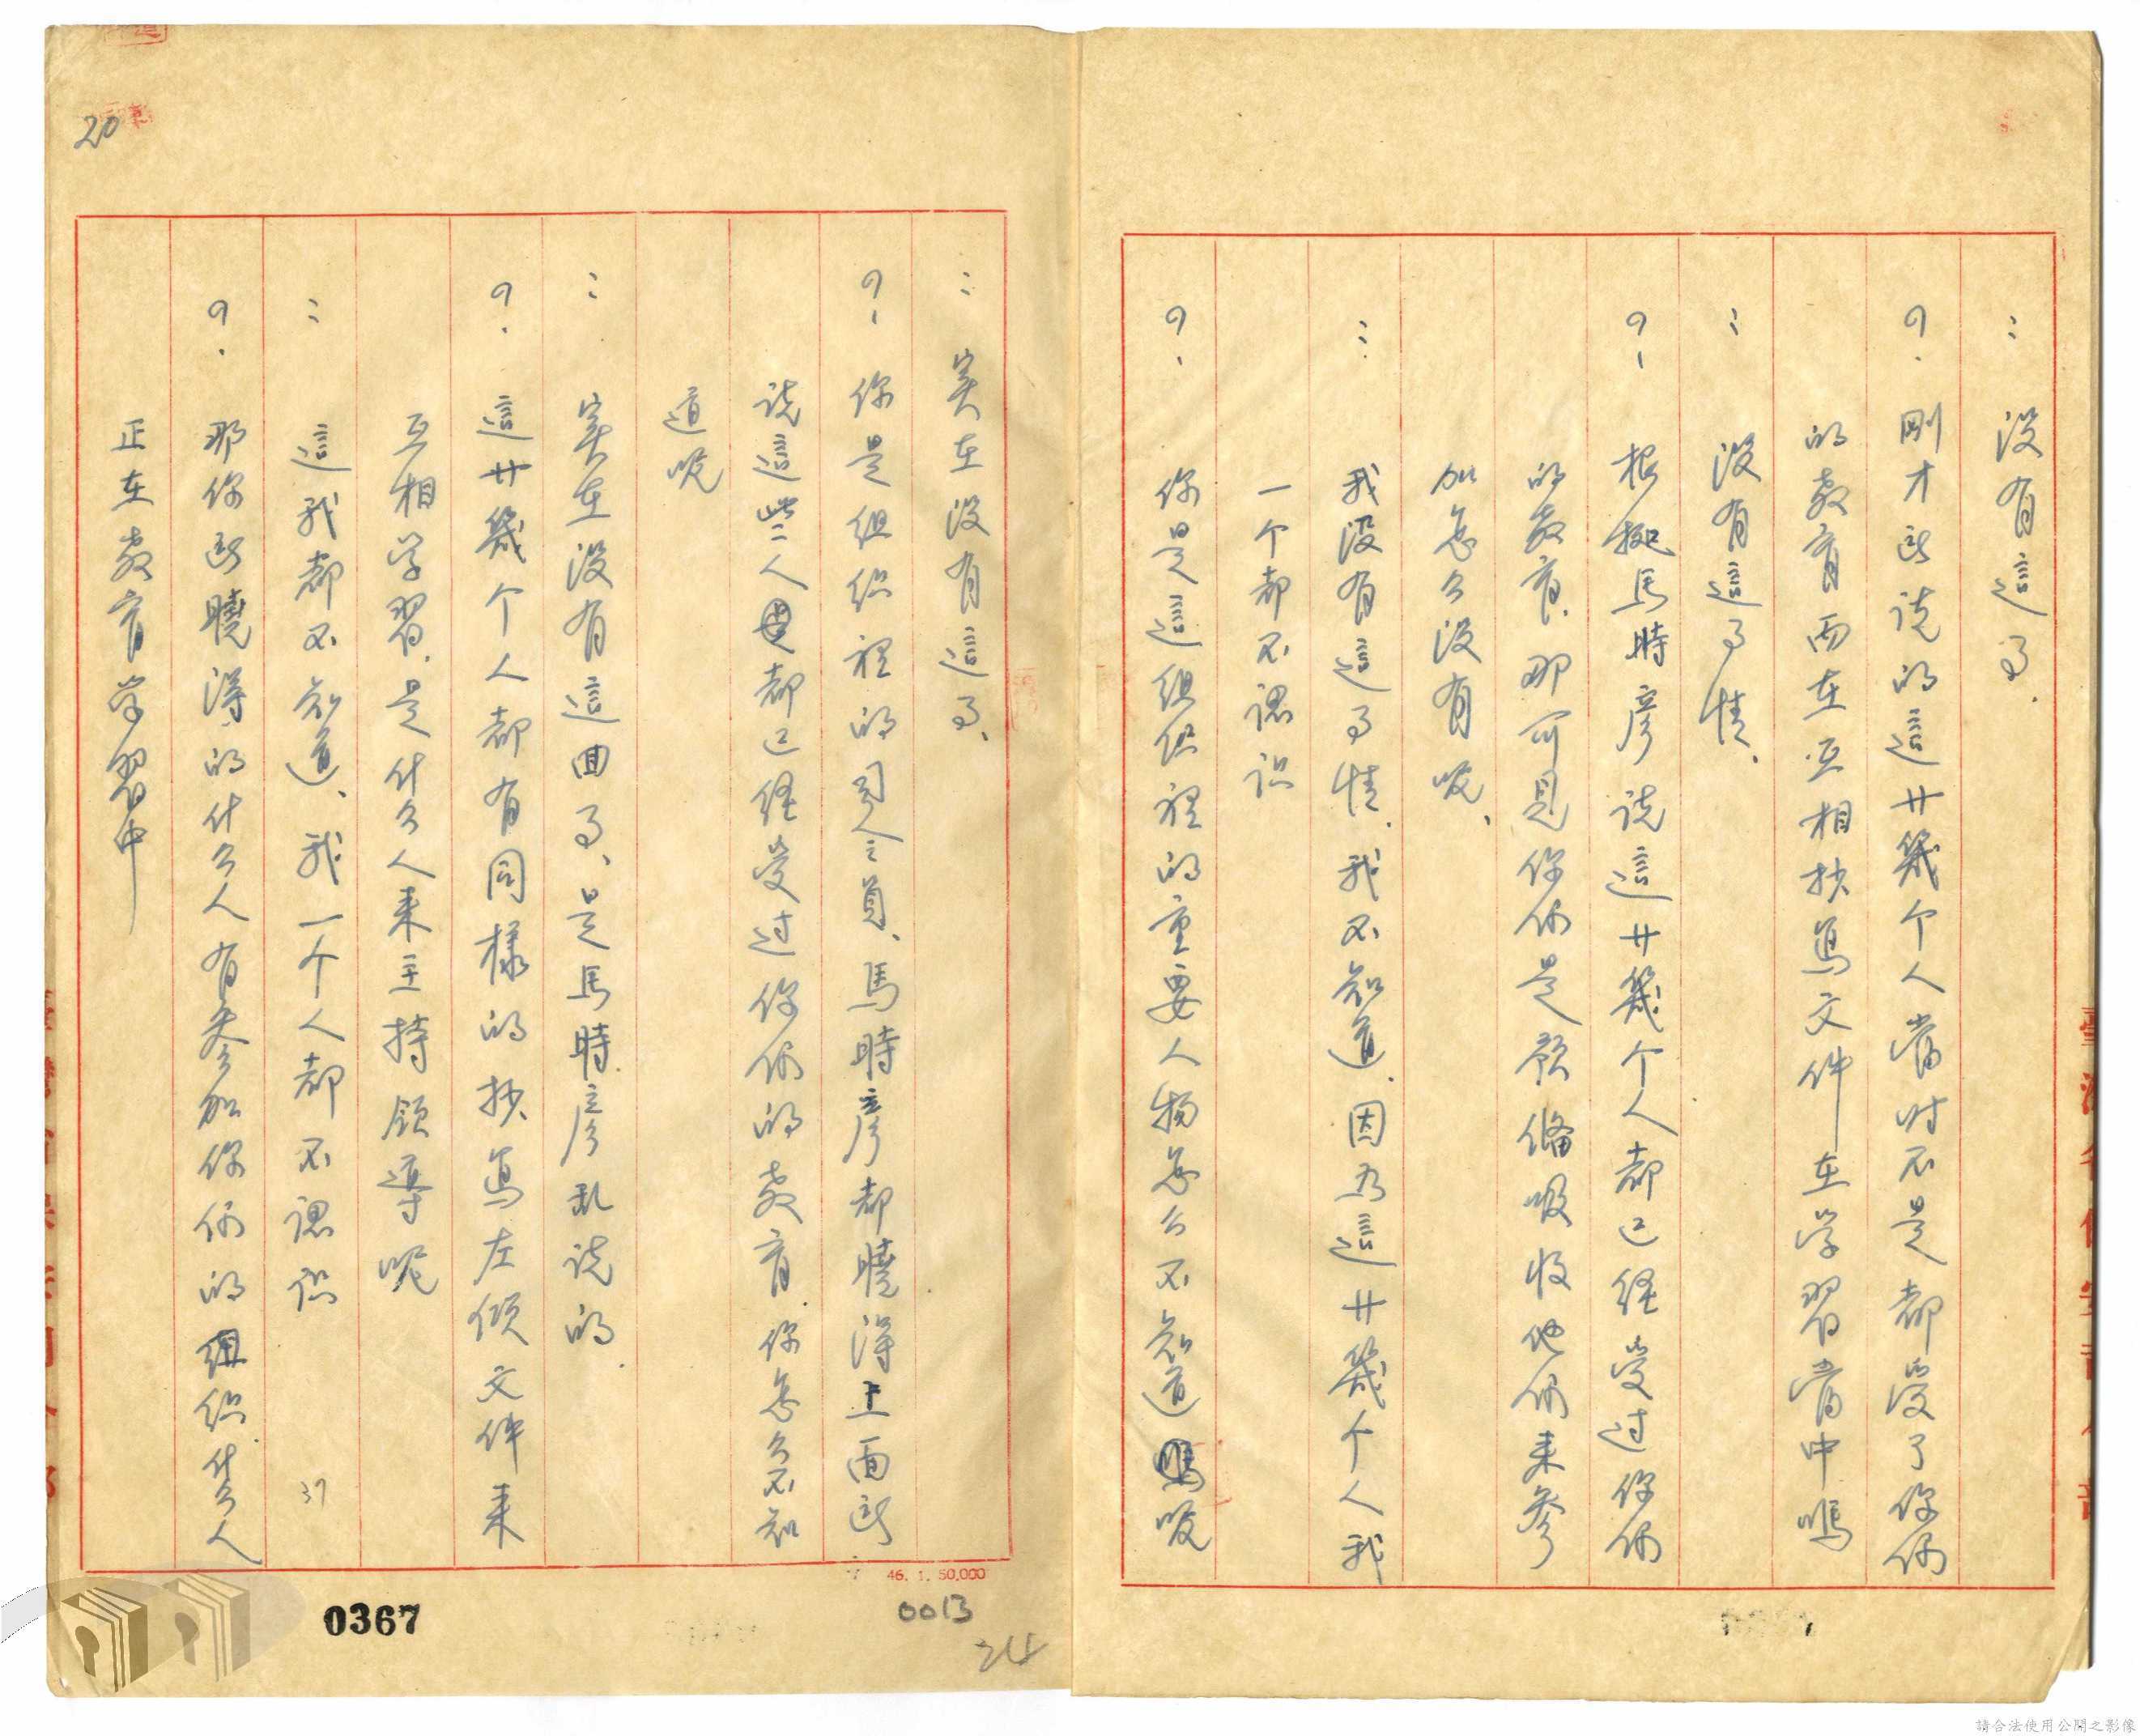 ：没有這事.
？. 剛才所说的這廿幾个人當时不是都受了你们
的教育而在互相抄写文件在学習當中嗎
：没有這事情、
？、根據馬時彦说這廿幾个人都已経受过你们
的教育、那可是你们是預俻吸收他们来參
加怎么没有呢、
：我没有這事情、我不知道、因为這廿幾个人我
一个都不認识
？、你是這组织裡的重要人物怎么不知道呢
：実在没有這事、
？、你是组织裡的司令員、馬時彦都曉得上面所
说這些人都已経受过你们的教育、你怎么不知
道呢
：実在没有這回事、是馬時彦乱说的.
？. 這廿幾个人都有同樣的抄写左傾文件来
互相学習、是什么人来主持領導呢
：這我都不知道、我一个人都不認识
？. 那你所曉得的什么人有參加你们的组织、什么人
正在教育学習中
20
37
46. 1. 50,000
0013
0367
請合法使用公開之影像